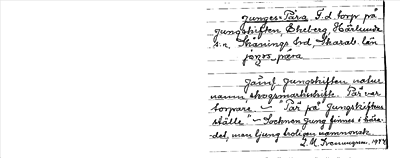 Junges-Pära, F.d. torp på
Jungskiften, Ekeberg, Härlunda
s:n, Skånings hd, Skarab. län
jöṉgs pära
Jämf Jungskiften natur
namn, skogsmarksskifte. Pär var
torpare – "Pär på Jungskiftens
ställe" – Socknen Jung finnes i hära-
det, men ljung troligen namnorsak
1977